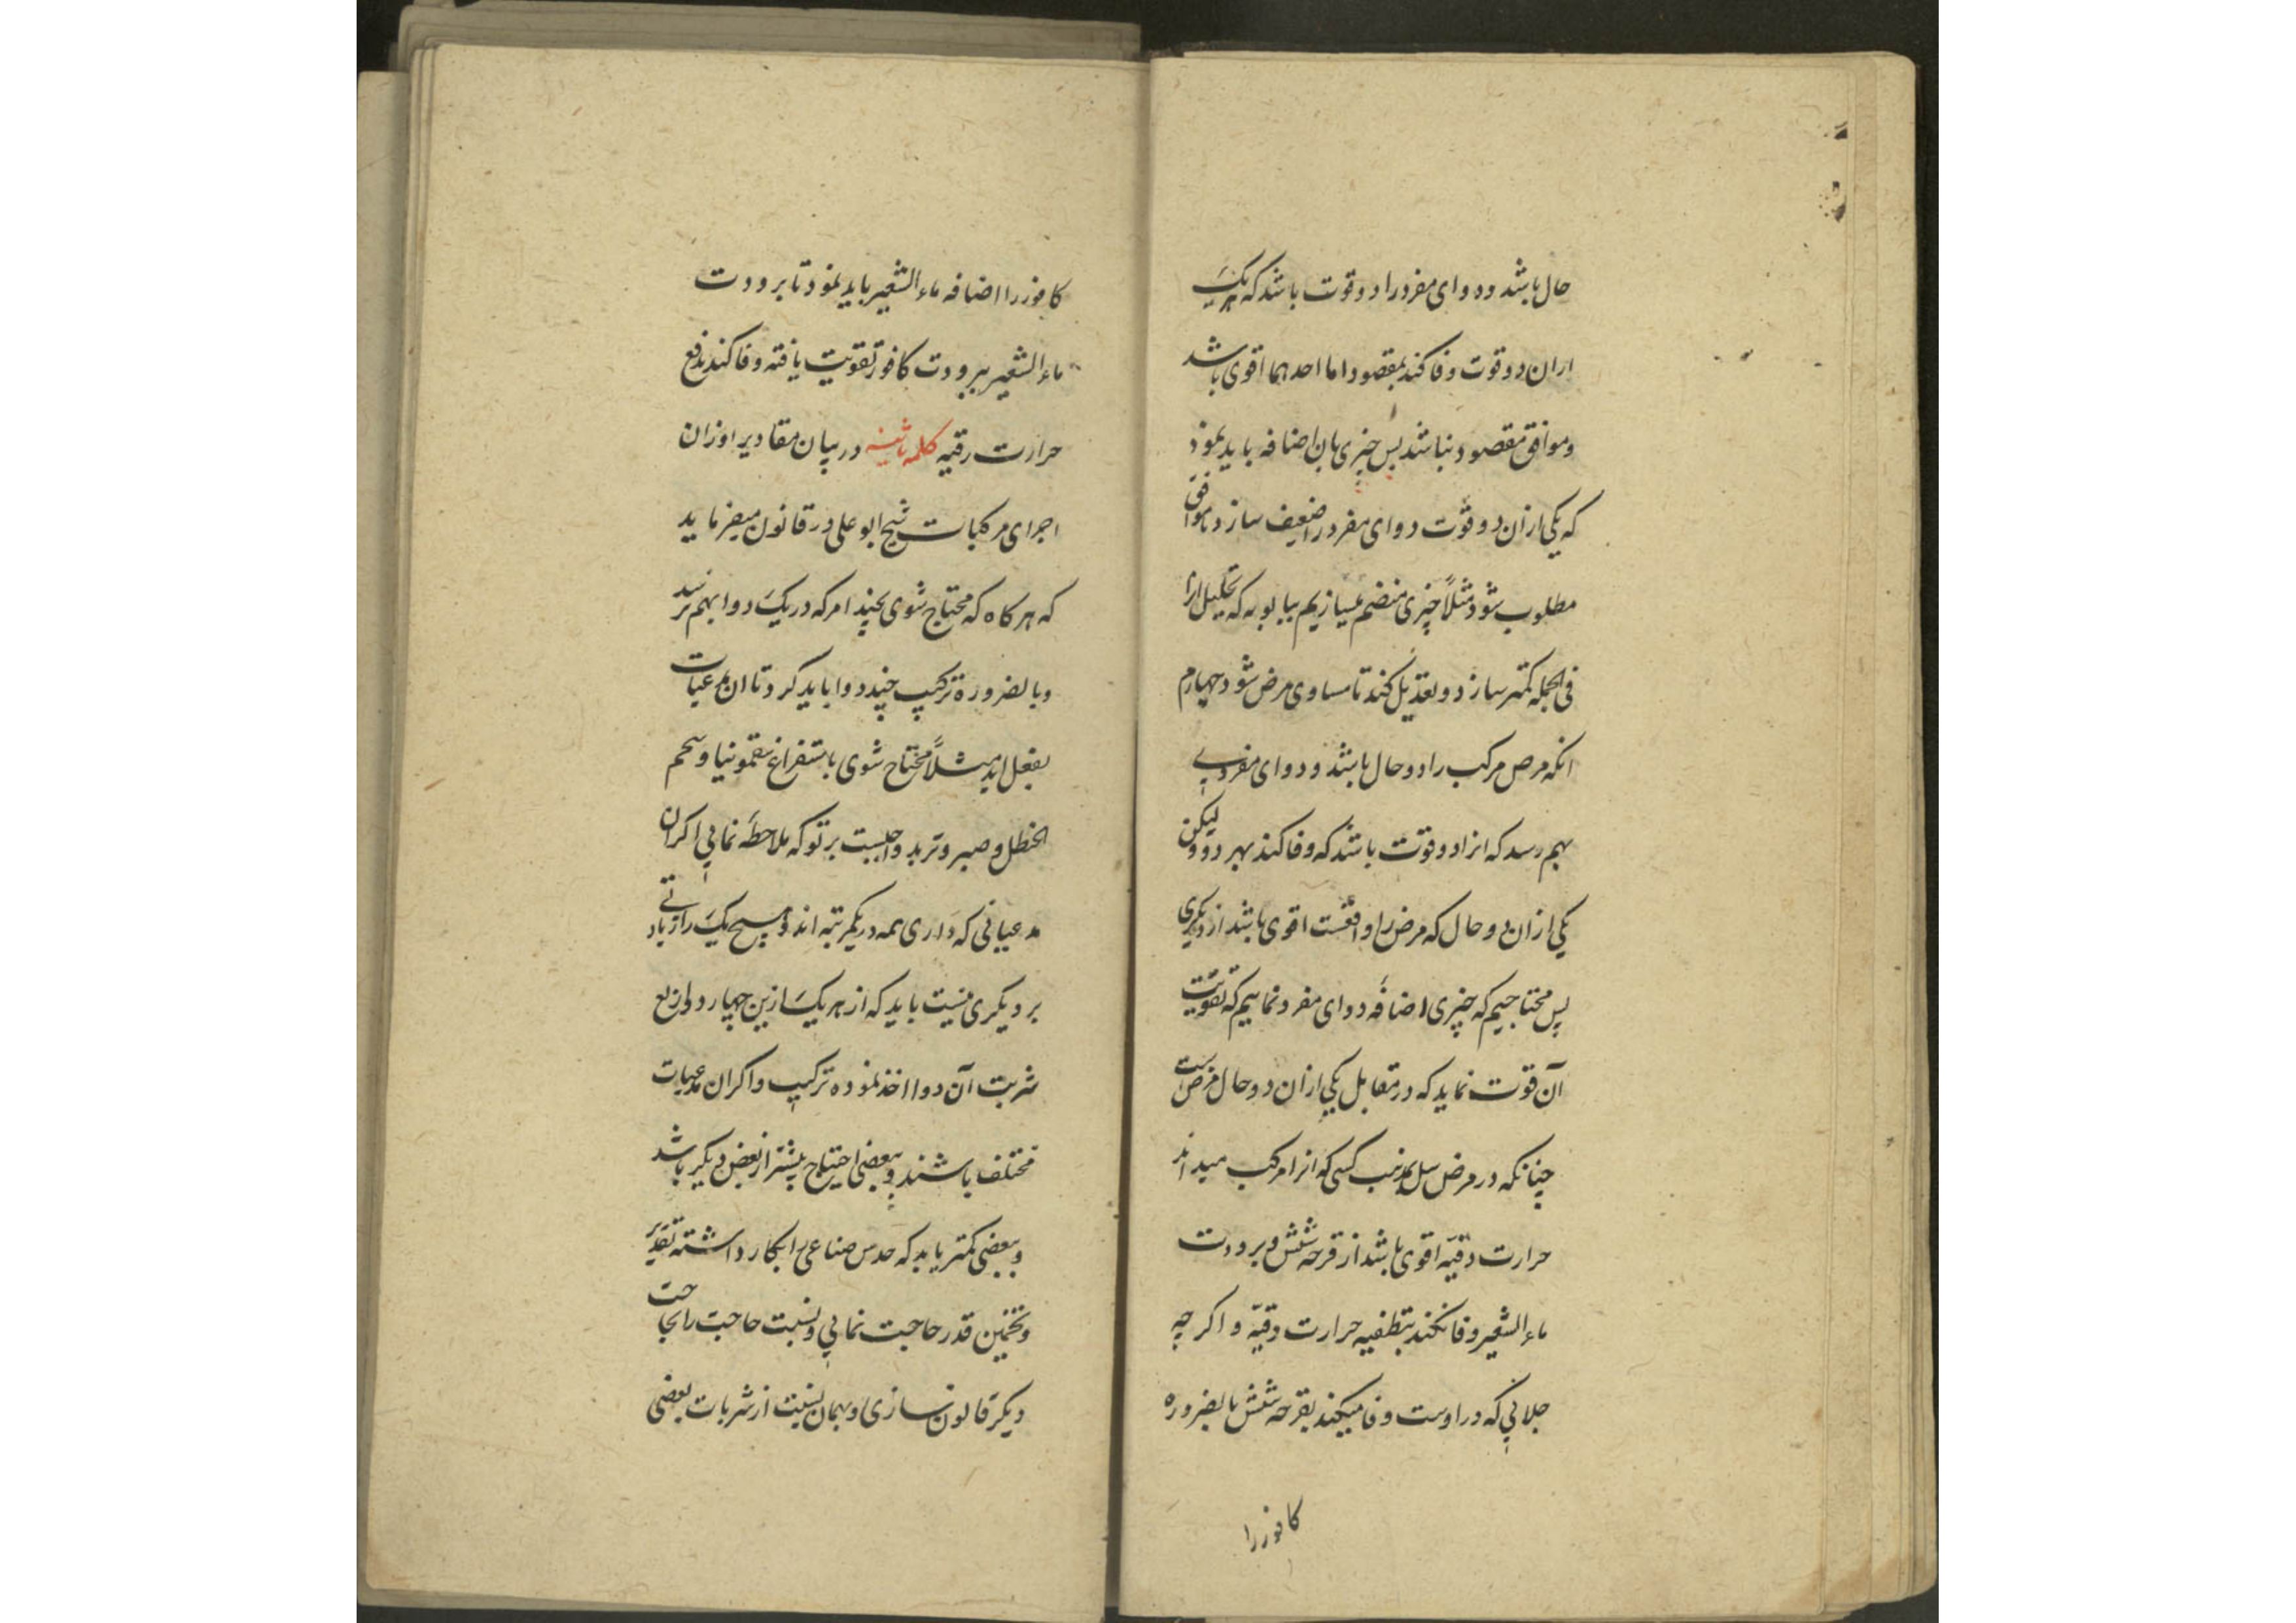 حال باشد ودوای مفرد را دو قوت باشد که هر یک
ازان دو قوت وفا کند بمقصود اما احدهما اقوی باشد
و موافق مقصود نباشد پس چیزی بان اضافه باید نمود
که یکی ازان دو قوت دوای مفرد را ضعیف سازد تا موافق
مطلوب شود مثلاً چیزی منضم میسازیم ببابونه که تحلیل انرا
فی الجمله کمتر سازد و تعدیل کند تا مساوی مرض شود چهارم
انکه مرض مرکب را دو حال باشد و دوای مفردی
بهم رسد که انرا دو قوت باشد که وفا کند بهر دو ولیکن
یکی ازان دو حال که مرض را واقعست اقوی باشد از دیگری
پس محتاجیم که چیزی اضافه دوای مفرد نماییم که تقویت
آن قوت نماید که در مقابل یکی ازان دو حال مرض است
چنانکه در مرض سل بمذهب کسی که انرا مرکب میداند
حرارت دقیه اقوی باشد از قرحه شش و برودت
ماء الشعیر وفا نکند بتطفیه حرارت دقیه و اکرچه
جلائی که در اوست وفا میکند بقرحه شش بالضروره
کافور را
کافور را اضافه ماء الشعیر باید نمود تا برودت
ماء الشعیر ببرودت کافور تقویت یافته وفا کند بدفع
حرارت دقیه کلمه ثانیه در بیان مقادیر اوزان
اجزای مرکبات شیخ ابو علی در قانون میفرماید
که هرکاه که محتاج شوی بچند امر که در یک دوا بهم نرسد
و بالضروره ترکیب چند دوا باید کرد تا ان مدعیات
بفعل اید مثلاً محتاج شوی باستفراغ سقمونیا و شحم
الحنظل و صبر و تربد واجبست بر تو که ملاحظه نمایی اکر ان
مدعیاتی که داری همه در یکمرتبه اند و هیچ یک را زیادتی
بر دیکری نیست باید که از هر یک ازین چهار دوا ربع
شربت آن دوا اخذ نموده ترکیب و اکر ان مدعیات
مختلف باشند و ببعضی احتیاج بیشتر از بعض دیکر باشد
و ببعضی کمتر باید که حدس صناعی را بکار داشته تقدیر
و تخمین قدر حاجت نمایی و نسبت حاجت را بحاجت
دیکر قانون سازی و بهمان نسبت از شربات بعضی